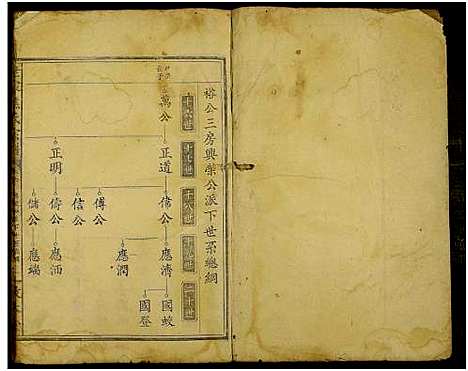 裕公三房興榮公派下世系總綱
十六世
十七世
十八世
十九世
二十世
萬公
正道
正明
信公
傅公
信公
俦公
儲公
應濟
應潤
應洒
應瑞
國蛟
國登